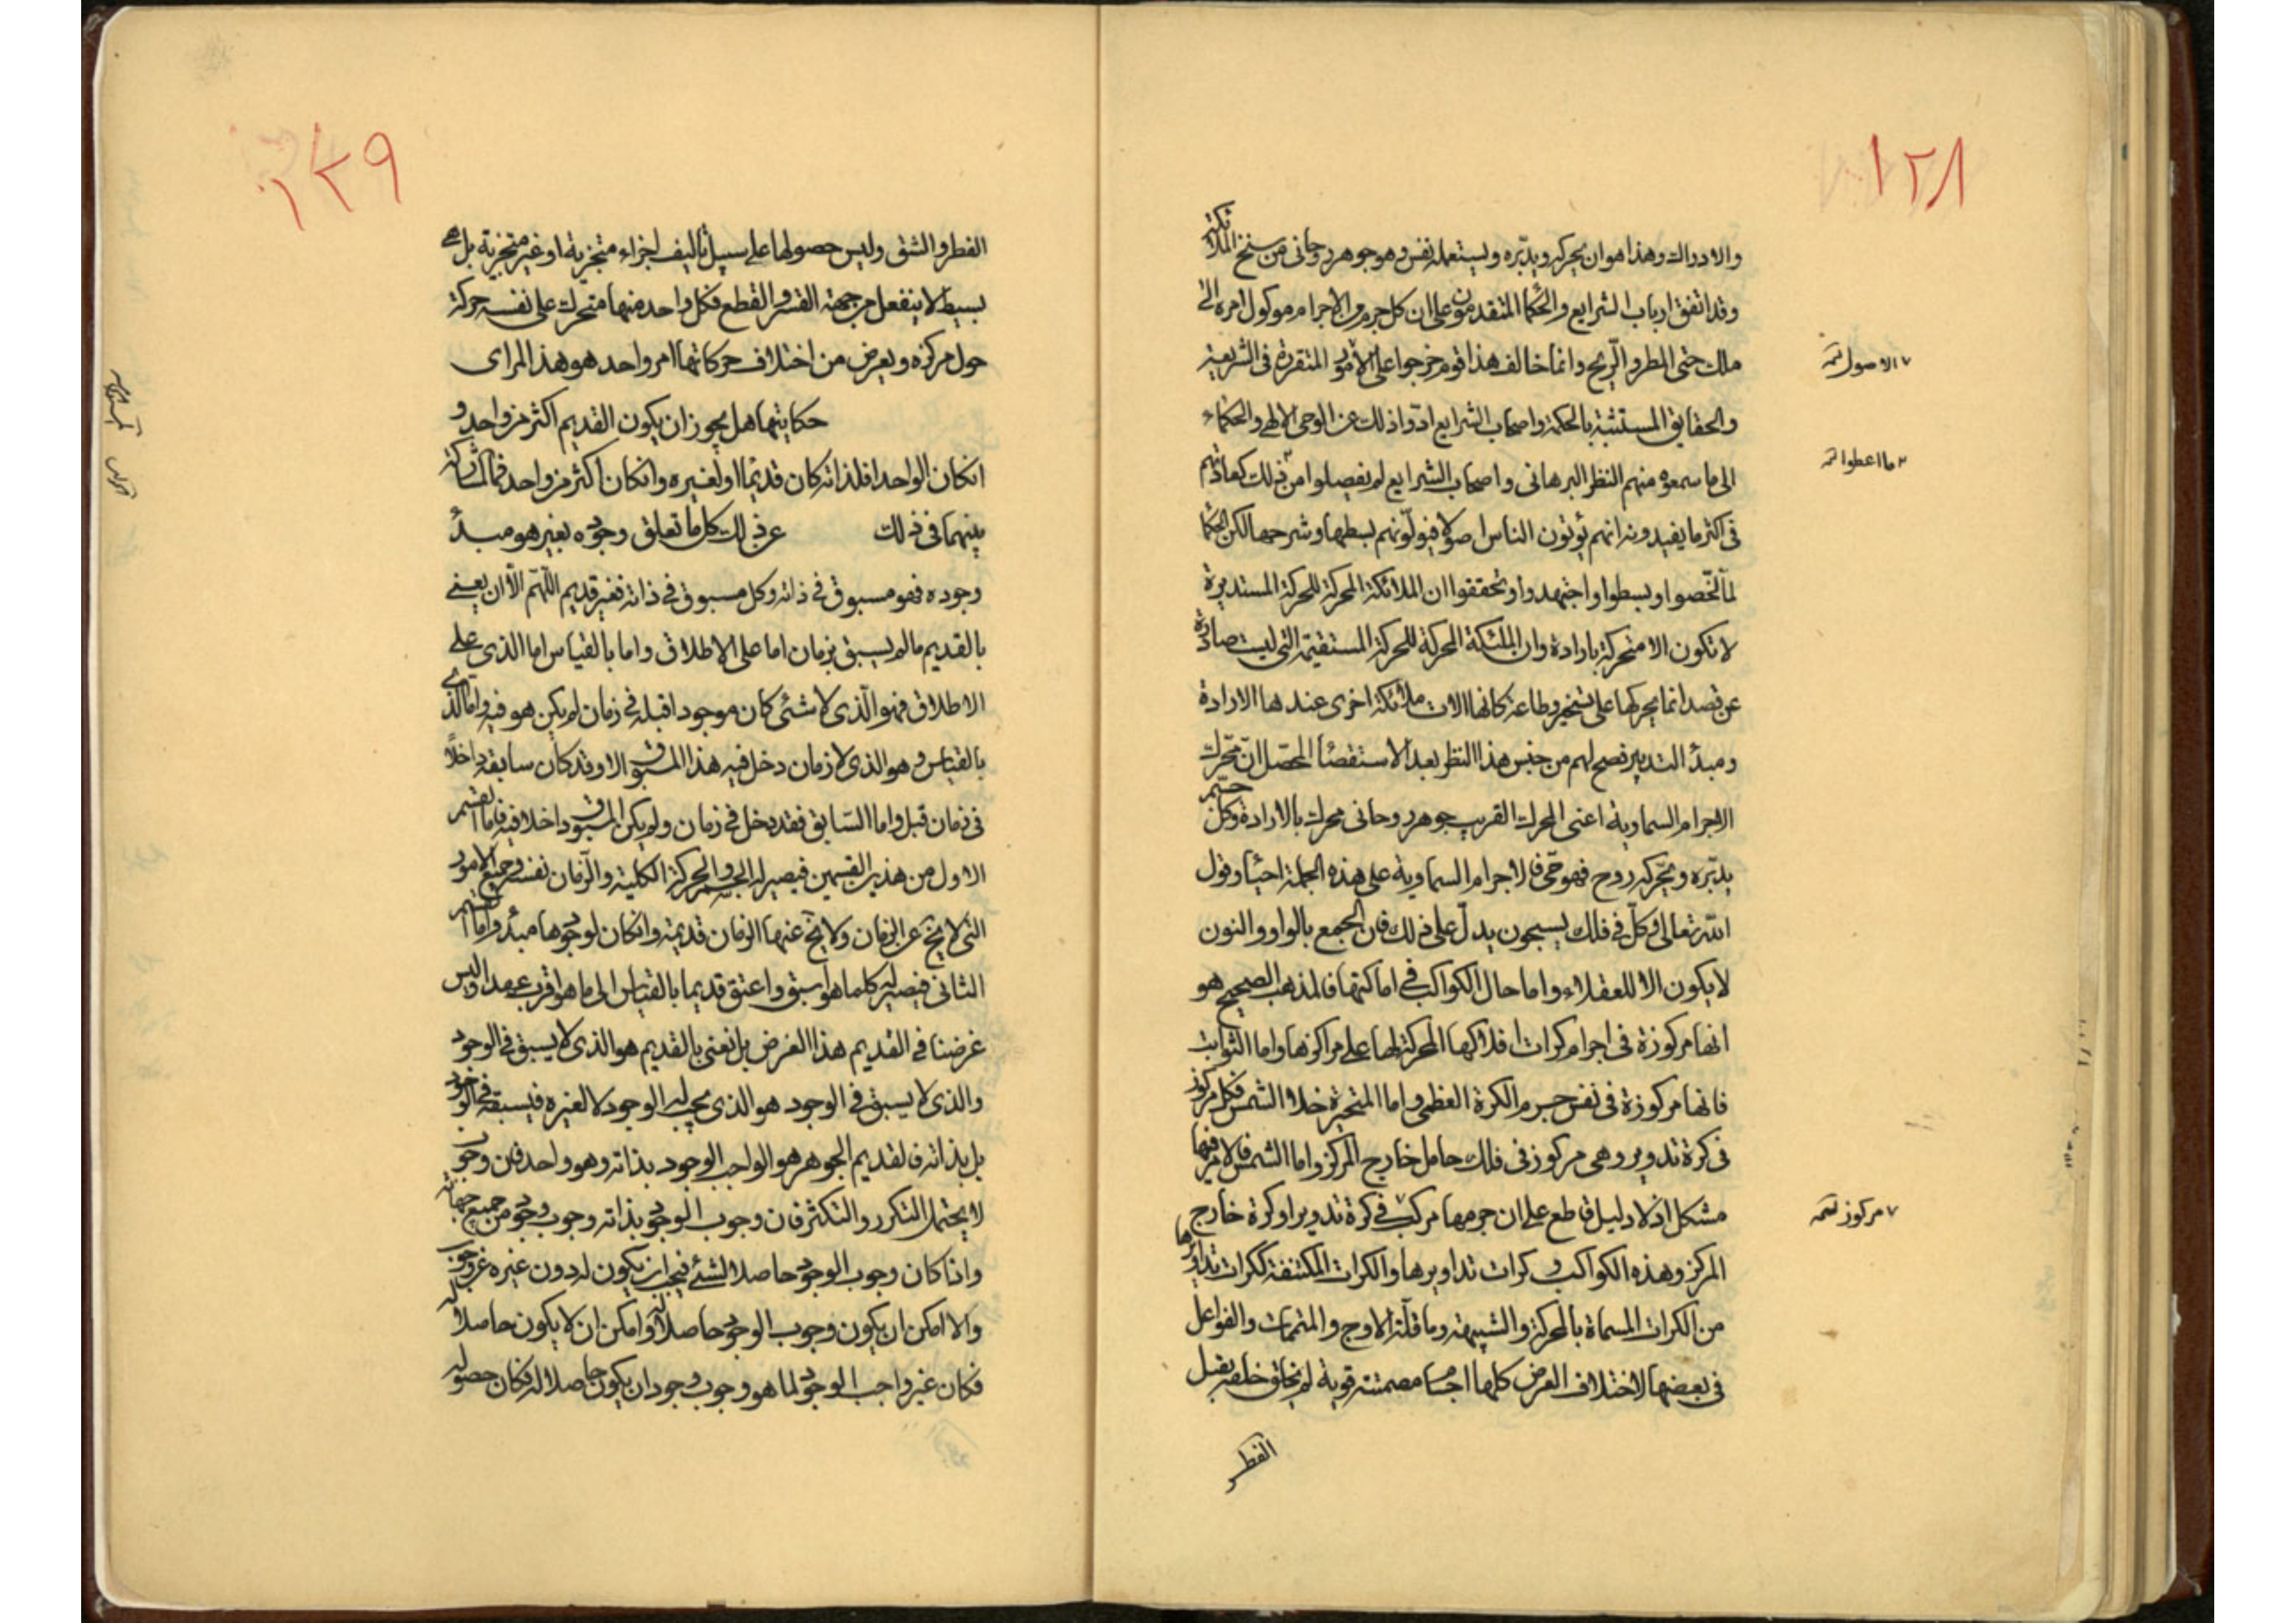 ١٢٨
والادوال وهذا هو ان يحركه ويدبّره ويستعمله نفس وهو جوهر روحانى من سنخ الملائكة
وقد اتفق ارباب الشرايع والحكما المتقدمون على ان كل جرم من الاجرام موكول امره الى
ملك حتى المطر والريح وانما خالف هذا قوم خرجوا على الامور المتقررة فى الشريعة
والحقايق المستثبتة بالحكمة واصحاب الشرايع ادّوا ذلك عن الوحى الالهى والحكماء
الى ما سمعوه منهم النظر البرهانى واصحاب الشرايع لم يفصلوا من ذلك كعادتهم
فى اكثر ما يفيدونه انهم يؤتون الناس اصولا فيولّونهم بسطها وشرحها لكن الحكما
لما لخّصوا وبسطوا واجتهدوا وتحققوا ان الملائكة المحركة للحركة المستديرة
لا تكون الا متحركة بارادة وان الملئكة المحركة للحركة المستقيمة التى ليست صادرة
عن قصد انما يحركها على تسخير وطاعة كانها الات ملائكة اخرى عندها الارادة
ومبدأ التدبير فصح لهم من جنس هذا النظر بعد الاستقصاء المحصّل ان محرك
الاجرام السماوية اعنى المحرك القريب جوهر روحانى محرك بالارادة وكل جسم
يدبّره ويحّركه روح فهو حىّ فالاجرام السماوية على هذه الجملة احياء وقول
الله تعالى وكلّ فى فلك يسبحون يدلّ على ذلك فان الجمع بالواو والنون
لا يكون الا للعقلاء واما حال الكواكب فى اماكنها فالمذهب الصحيح هو
انها مركوزة فى اجرام كرات افلاكها المحركة لها على مراكزها واما الثوابت
فانها مركوزة فى نفس جرم الكرة العظمى واما المتحيرة خلا الشمس فكل مركوز
فى كرة تدوير وهى مركوز فى فلك حامل خارج المركز واما الشمس فالامر فيها
مشكل اذ لا دليل قاطع على ان جرمها مركب فى كرة تدوير او كرة خارج
المركز وهذه الكواكب و كرات تداويرها والكرات المكتنفة لكرات تداويرها
من الكرات المسماة بالمحركة والشبيهة وماقلّة الاوج والمتممات والفواعل
فى بعضها لاختلاف العرض كلها اجسام مصمتة قوية لم يخلق خلقه يقبل
الفطر
٧ الاصول نسخه
٢ ما اعطوا نسخه
٧ مركوز نسخه
١٢٩
الفطر والشق وليس حصولها على سبيل تأليف اجزاء متجزية او غير متجزية بل هى
بسيط لا ينفعل من جهة القسر والقطع فكل واحد منها متحرك على نفسه حركة
حول مركزه ويعرض من اختلاف حركاتها امر واحد هو هذا المراى
حكايتها هل يجوز ان يكون القديم اكثر من واحد و
ان كان الواحد افلذاته كان قديمًا او لغيره وان كان اكثر من واحد فما المشاركة
بينهما فى ذلك عن ذلك كل ما تعلق وجوده بغير هو مبدأ
وجوده فهو مسبوق فى ذاته وكل مسبوق فى ذاته فغير قديم اللهمّ الّا ان يعنى
بالقديم ما لم يسبق بزمان اما على الاطلاق واما بالقياس اما الذى على
الاطلاق فهو الّذى لا شئ كان موجودا قبله فى زمان لم يكن هو فيه واما الذى
بالقياس وهو الذى لا زمان دخل فيه هذا المسبوق الا وقد كان سابقه داخلًا
فى زمان قبل واما السّابق فقد يدخل فى زمان ولم يكن المسبوق داخلا فيه فاما القسم
الاول من هذين القسمين فيصير له الجسم والحركة الكلية والزمان نفسه وجميع الامور
التى لا يخ عن الزمان ولا يخ عنها الزمان قديمة وان كان لوجودها مبدأ واما القسم
الثانى فيصير كلما هو اسبق واعتق قديما بالقياس الى ما هو اقرب عهدا وليس
غرضنا فى القديم هذا الغرض بل نعنى بالقديم هو الذى لا يسبق فى الوجود
والذى لا يسبق فى الوجود هو الذى يجب له الوجود لا لغيره فيسبقه فى الوجود
بل بذاته فالقديم الجوهر هو الواجب الوجود بذاته وهو واحد فان وجوب
لا يحتمل التكرر والتكثر فان وجوب الوجود بذاته وجوب وجود من جميع جهاته
واذا كان وجوب الوجود حاصلا لشئ فيجب ان يكون له دون غيره عن وجوب
والا امكن ان يكون وجوب الوجود حاصلا له وامكن ان لا يكون حاصلا له
فكان غير واجب الوجود لما هو وجوب وجود ان يكون حاصلا له فكان حصوله